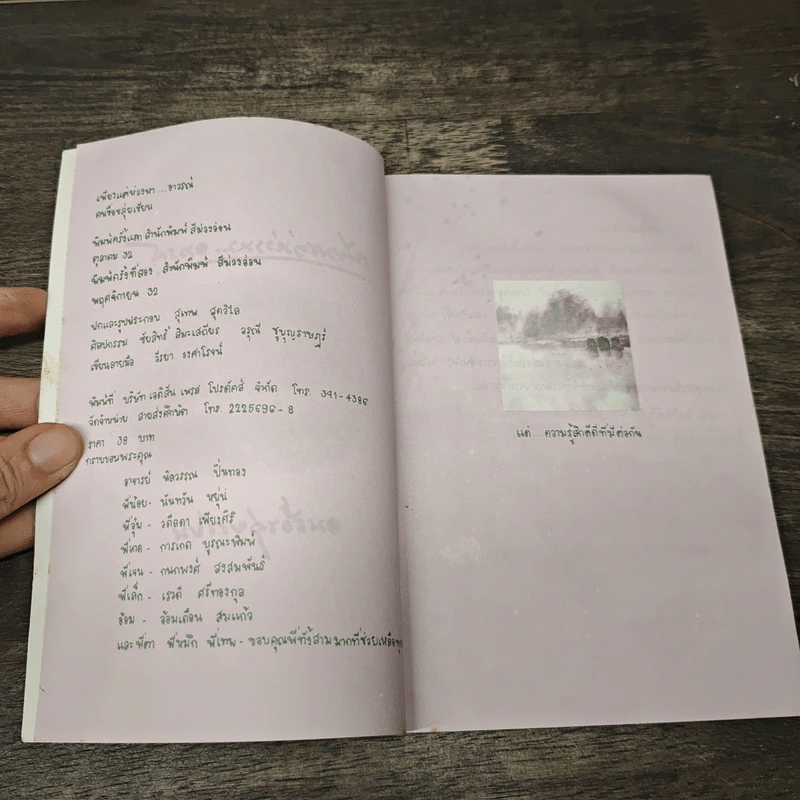 เพียงแค่ห้วงหา...อาวรณ์
คนชื่อขลุ่ยเขียน
พิมพ์ครั้งแรก สำนักพิมพ์ สีม่วงอ่อน
ตุลาคม 32
พิมพ์ครั้งที่สอง สำนักพิมพ์ สีม่วงอ่อน
พฤศจิกายน 32
ปกและรูปประกอบ สุเทพ สุดวิไล
ศิลปกรรม ชัยสิทธิ์ สิมะเสถียร อรุณี ชูบุญราษฎร์
เขียนลายมือ ธีรยา วงศาโรจน์
พิมพ์ที่ บริษัท เอดิสัน เพรส โปรดักส์ จำกัด โทร 391-4386
จัดจำหน่าย สายส่งศึกษิต โทร. 2225696-8
ราคา 38 บาท
กราบขอบพระคุณ
อาจารย์ พิลวรรณ ปิ่นทอง
พี่น้อย- นันทวัน หยุ่น
พี่อุ๋ม - วดีลดา เพียงศิริ
พี่เกด - การเกด บูรณะพิมพ์
พี่เจน - กนกพงศ์ สงสมพันธ์ุ
พี่เล็ก - เรวดี ศรีทองกุล
อ้อม - อ้อมเดือน สมแก้ว
และพี่ตา พี่หมึก พี่เทพ - ขอบคุณพี่ทั้งสามมากที่ช่วยเหลือ
แด่...ความรู้สึกดีดีที่มีต่อกัน